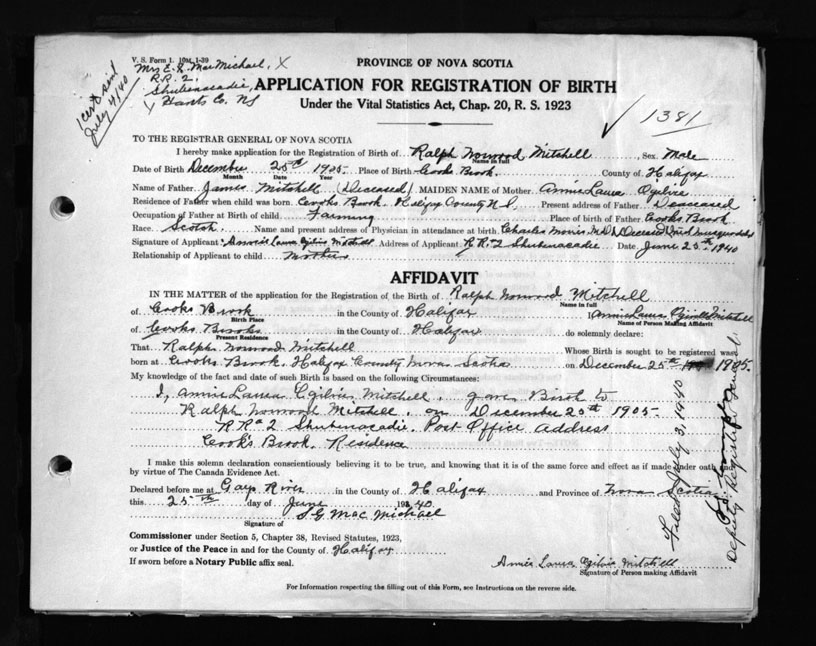 V. S. Form 1. 10M. 1-39
Mrs E. G. MacMichael, X
R.R. 2,
Shubenacadie,
Hants Co. NS
cert sent
July 4/40
PROVINCE OF NOVA SCOTIA
APPLICATION FOR REGISTRATION OF BIRTH
Under the Vital Statistics Act, Chap. 20, R. S. 1923
✓ 1381
TO THE REGISTRAR GENERAL OF NOVA SCOTIA
I hereby make application for the Registration of Birth of Ralph Norwood Mitchell, Sex Male
Name in full
Date of Birth December 25th 1905 Place of Birth Cooks Brook County of Halifax
Month Date Year
Name of Father James Mitchell (Deceased) MAIDEN NAME of Mother Annie Laura Ogilvie
Residence of Father when child was born Cooks Brook, Halifax County N.S. Present address of Father Deceased
Occupation of Father at Birth of child Farming Place of birth of Father Cooks Brook
Race Scotch. Name and present address of Physician in attendance at birth Charles Morris M.D. Deceased
Signature of Applicant Annie Laura Ogilvie Mitchell Address of Applicant R.R.2 Shubenacadie Date June 25th 1940
Relationship of Applicant to child Mother
AFFIDAVIT
IN THE MATTER of the application for the Registration of the Birth of Ralph Norwood Mitchell
Name in full
of Cooks Brook in the County of Halifax I, Annie Laura Ogilvie Mitchell
Birth Place Name of Person Making Affidavit
of Cooks Brook in the County of Halifax do solemnly declare:
Present Residence
That Ralph Norwood Mitchell Whose Birth is sought to be registered was
born at Cooks Brook, Halifax County Nova Scotia on December 25th 1905.
My knowledge of the fact and date of such Birth is based on the following Circumstances:
I, Annie Laura Ogilvie Mitchell, gave Birth to
Ralph Norwood Mitchell, on December 25th 1905
R R# 2 Shubenacadie, Post Office Address
Cook's Brook, Residence
I make this solemn declaration conscientiously believing it to be true, and knowing that it is of the same force and effect as if made under oath and
by virtue of The Canada Evidence Act.
Declared before me at Gays River in the County of Halifax and Province of Nova Scotia
this 25th day of June 1940
J G MacMichael
Signature of
Commissioner under Section 5, Chapter 38, Revised Statutes, 1923,
or Justice of the Peace in and for the County of Halifax
If sworn before a Notary Public affix seal.
Annie Laura Ogilvie Mitchell
Signature of Person making Affidavit
For Information respecting the filling out of this Form, see Instructions on the reverse side.
Filed July 3, 1940
Deputy Registrar General